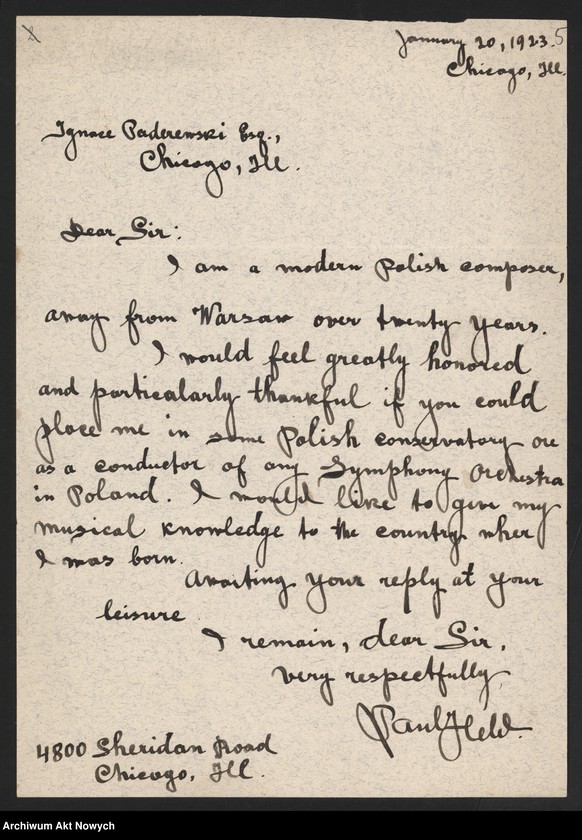 January 20, 1923.
5
Chicago, Ill.
Ignace Paderewski Esq.,
Chicago, Ill.
Dear Sir:
I am a modern Polish composer,
away from Warsaw over twenty years.
I would feel greatly honored
and particularly thankful if you could
place me in some Polish conservatory or
as a conductor of any Symphony Orchestra
in Poland. I would like to give my
musical knowledge to the country wher
I was born.
Awaiting your reply at your
leisure.
I remain, dear Sir,
very respectfully,
Paul Held.
4800 Sheridan Road
Chicago, Ill.
Archiwum Akt Nowych